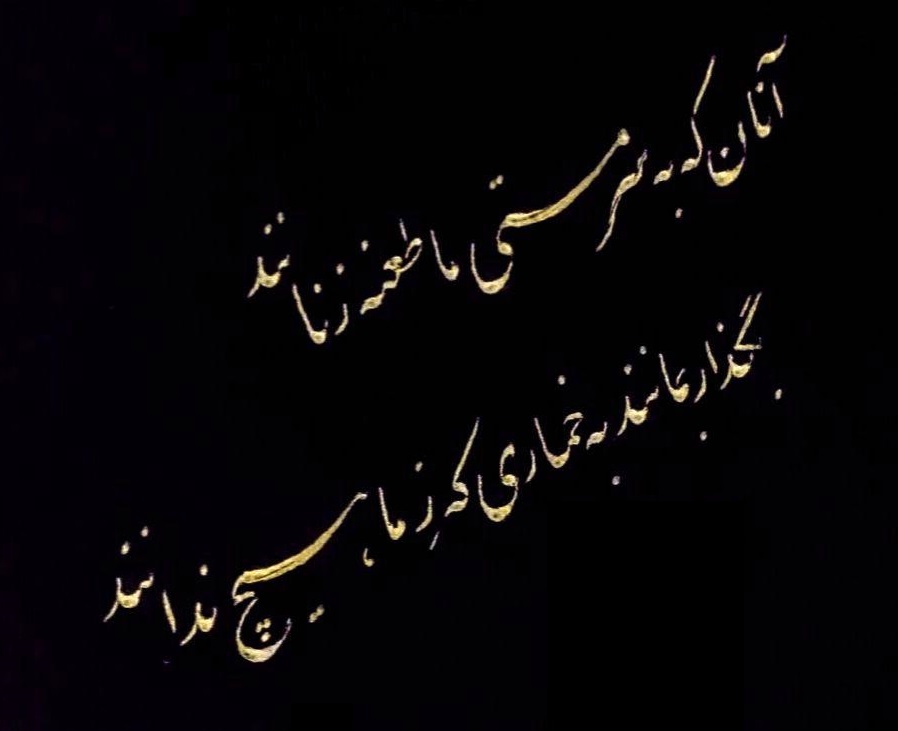 آنان که به سرمستی ما طعنه زنانند
بگذار بمانند به خماری که زِ ما هیچ ندانند